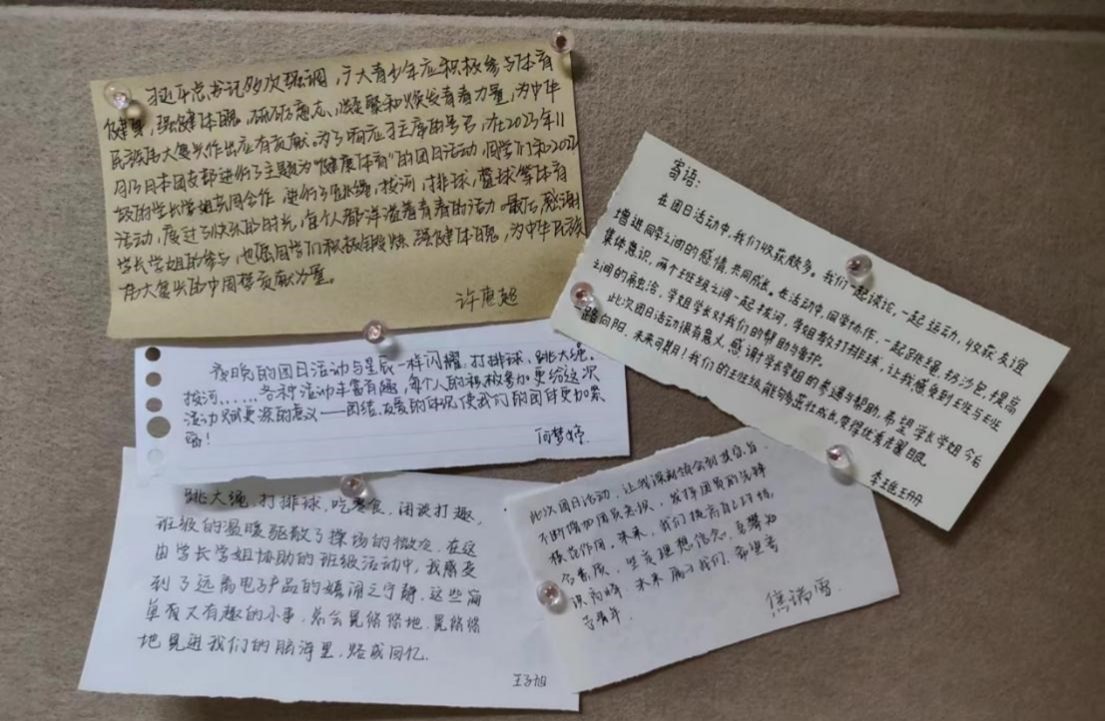 习近平总书记多次强调,广大青少年应积极参与体育
健身,强健体魄,砥砺意志,凝聚和焕发青春力量,为中华
民族伟大复兴作出应有贡献。为了响应习主席的号召,在2023年11
月17日本团支部进行了主题为“健康体育”的团日活动,同学们和2022
级的学长学姐共同合作,进行了跳绳,拔河,排球,篮球等体育
活动,度过了快乐的时光,每个人都洋溢着青春的活力。最后,感谢
学长学姐的参与,也嘱同学们积极锻炼,强健体魄,为中华民族
伟大复兴的中国梦贡献力量。
许唐超
夜晚的团日活动与星辰一样闪耀,打排球、跳大绳、
拔河……各种活动丰富有趣,每个人的积极参加更给这次
活动赋更深的意义——团结、友爱的体现使我们的团体更加紧
密!
何梦婷
跳大绳,打排球,吃零食,闲谈打趣,
班级的温暖驱散了操场的微凉,在这
由学长学姐协助的班级活动中,我感受
到了远离电子产品的嬉闹之宁静,这些简
单而又有趣的小事,总会晃悠悠地,晃悠悠
地晃进我们的脑海里,烙成回忆.
王子旭
寄语:
在团日活动中,我们收获颇多。我们一起谈论,一起运动,收获友谊
增进同学之间的感情,共同成长。在活动中,同学协作,一起跳绳,扔沙包,提高
集体意识,两个班级之间一起拔河,学姐教打排球,让我感受到班与班
之间的融洽,学姐学长对我们的帮助与爱护。
此次团日活动很有意义,感谢学长学姐的参与与帮助,希望学长学姐今后
路向阳,未来可期!我们的班级,能够茁壮成长,变得优秀。
此次团日活动,让我深刻领会到
不断增加团员意识,发挥团员的先锋
模范作用。未来,我们提高自己
素质,坚定理想信念,
未来属于我们,
青年.
焦瑞雪.